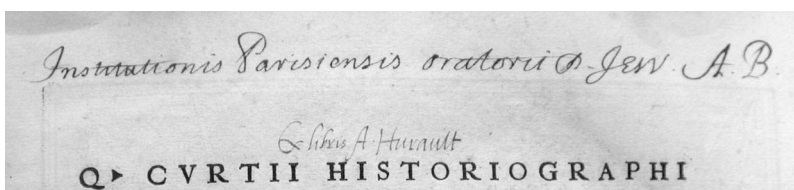 Institutionis Parisiensis oratorii D. JESV. A. B.
Ex libris A Hurault
Q▸ CVRTII HISTORIOGRAPHI